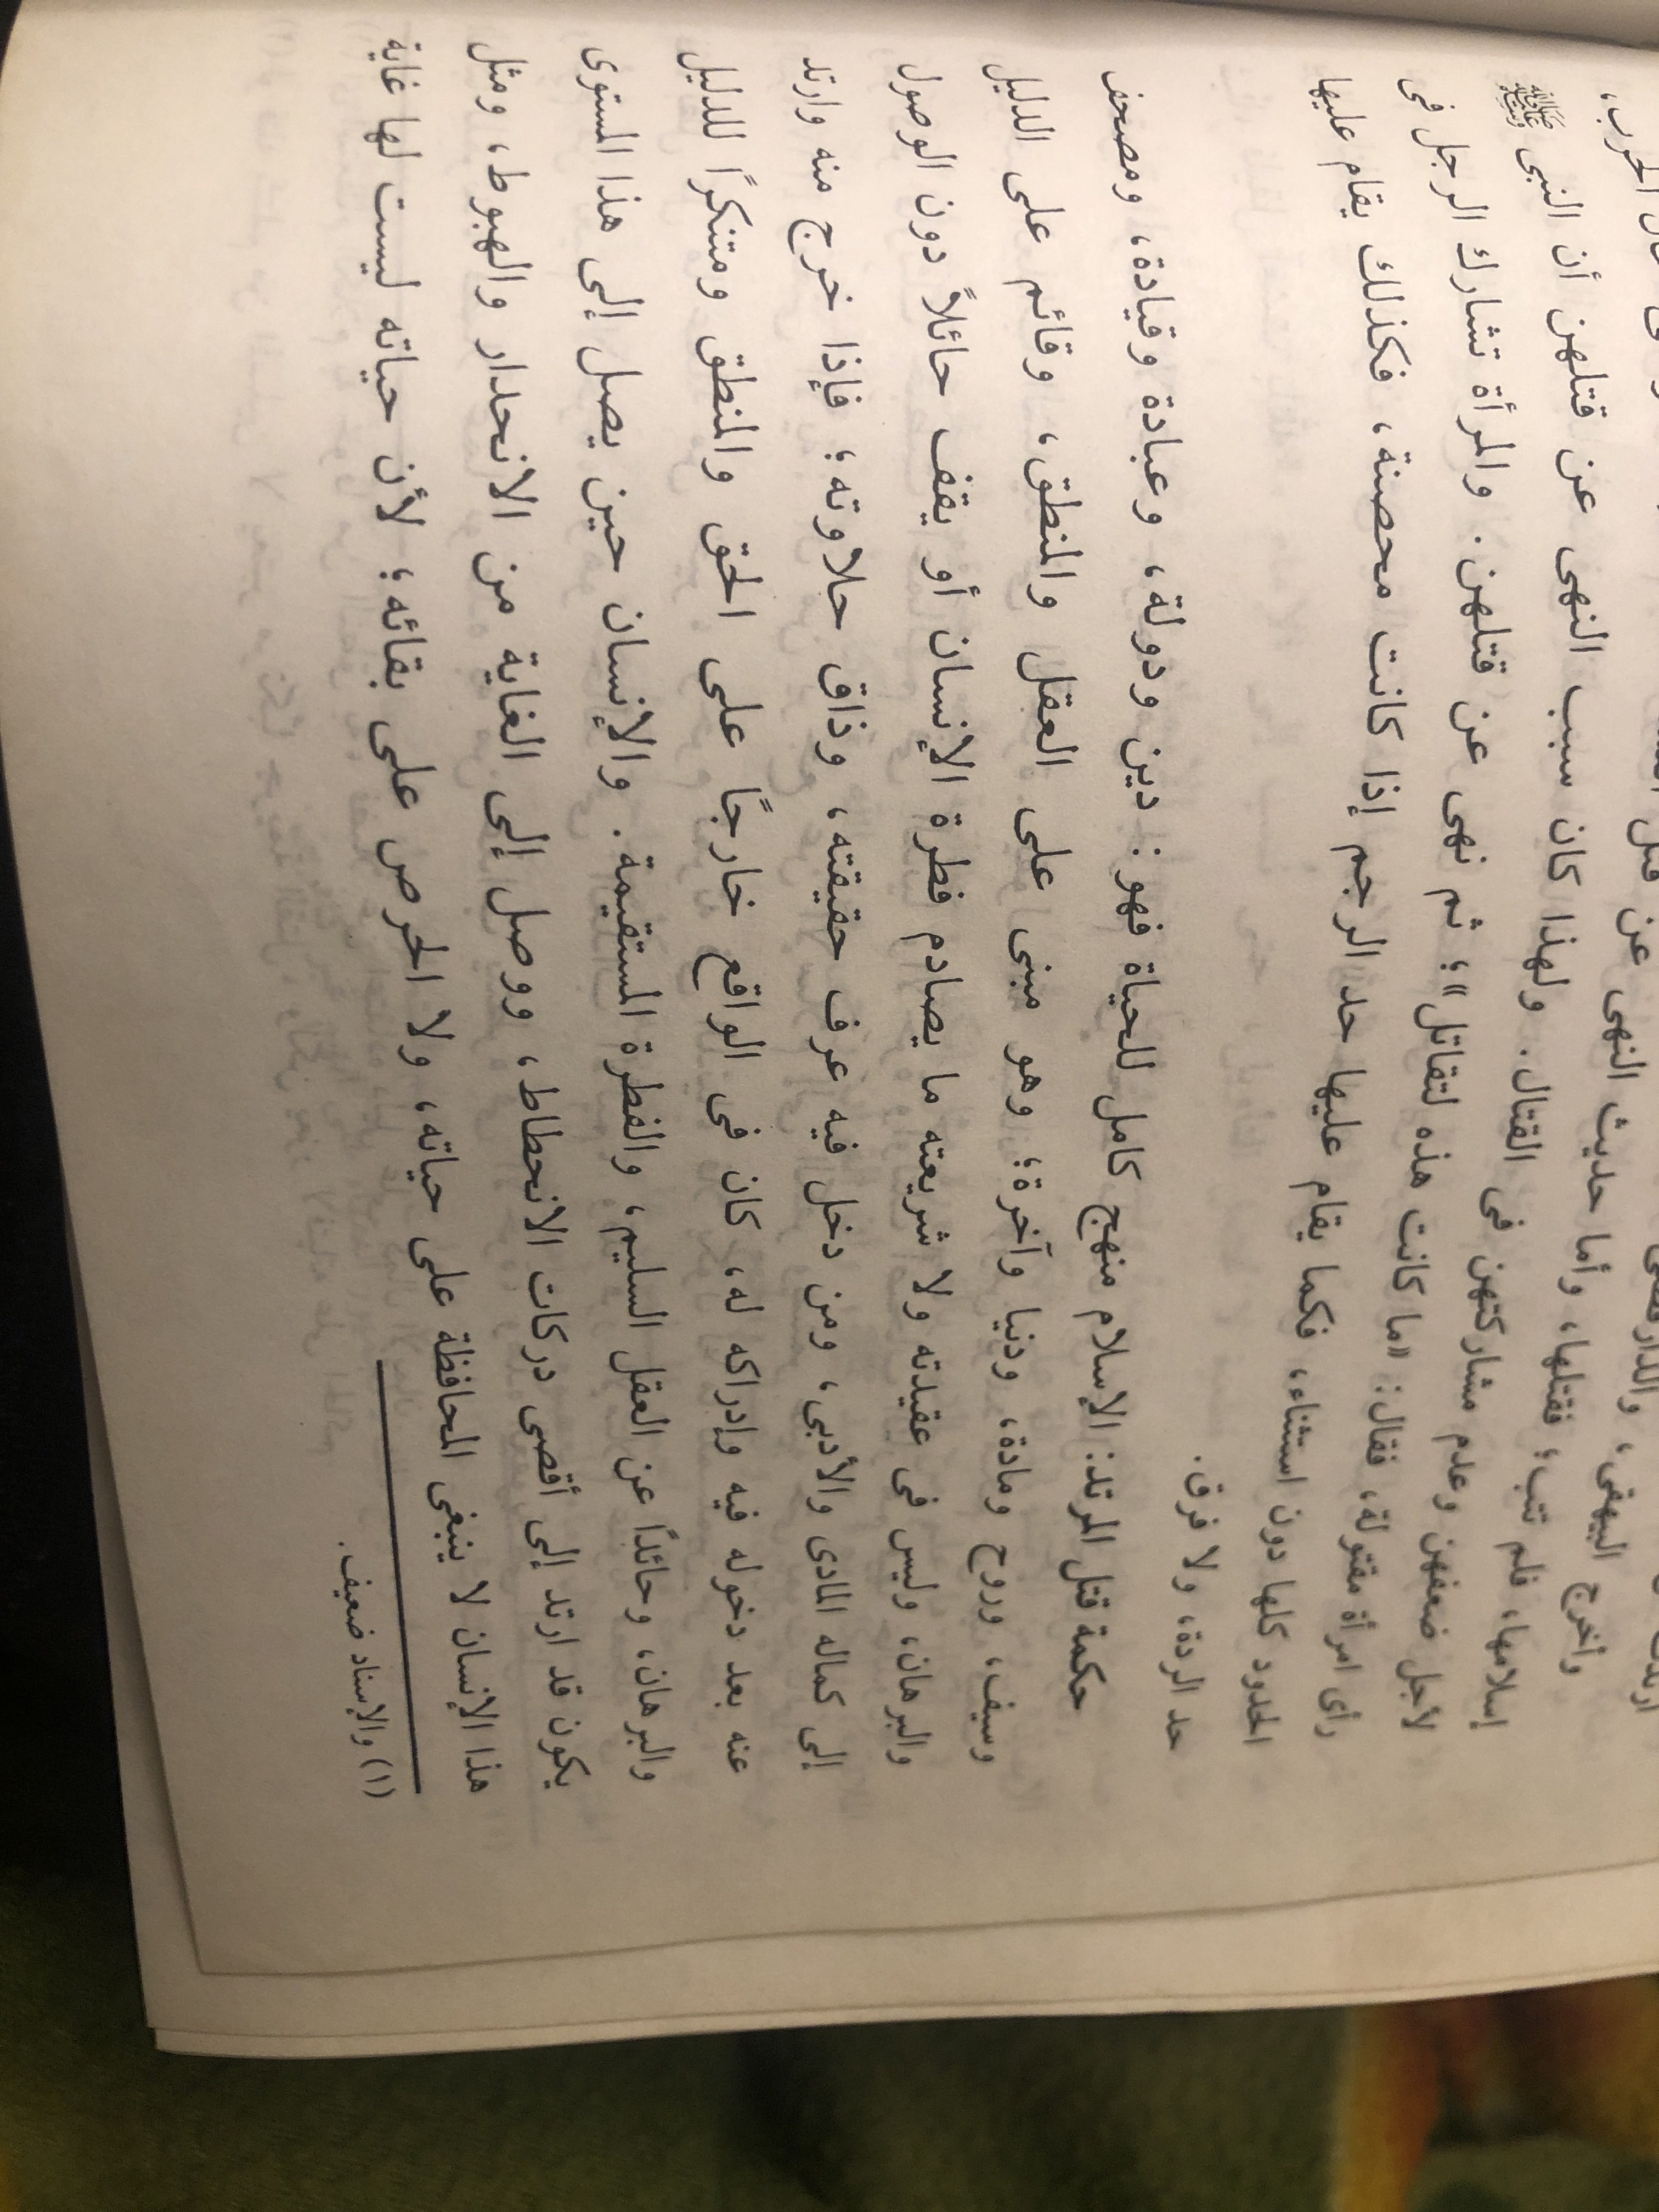 عن قتل
وأخرج البيهقى، والدارقطنى
إسلامها، فلم تتب؛ فقتلها، وأما حديث النهى عن قتل الحرب،
لأجل ضعفهن وعدم مشاركتهن فى القتال. ولهذا كان سبب النهى عن قتلهن أن النبى ﷺ
رأى امرأة مقتولة، فقال: «ما كانت هذه لتقاتل»؛ ثم نهى عن قتلهن. والمرأة تشارك الرجل فى
الحدود كلها دون استثناء، فكما يقام عليها حد الرجم إذا كانت محصنة، فكذلك يقام عليها
حد الردة، ولا فرق.
حكمة قتل المرتد: الإسلام منهج كامل للحياة فهو: دين ودولة، وعبادة وقيادة، ومصحف
وسيف، وروح ومادة، ودنيا وآخرة؛ وهو مبنى على العقل والمنطق، وقائم على الدليل
والبرهان، وليس فى عقيدته ولا شريعته ما يصادم فطرة الإنسان أو يقف حائلاً دون الوصول
إلى كماله المادى والأدبى، ومن دخل فيه عرف حقيقته، وذاق حلاوته؛ فإذا خرج منه وارتد
عنه بعد دخوله فيه وإدراكه له، كان فى الواقع خارجًا على الحق والمنطق ومتنكرًا للدليل
والبرهان، وحائدًا عن العقل السليم، والفطرة المستقيمة. والإنسان حين يصل إلى هذا المستوى
يكون قد ارتد إلى أقصى دركات الانحطاط، ووصل إلى الغاية من الانحدار والهبوط، ومثل
هذا الإنسان لا ينبغى المحافظة على حياته، ولا الحرص على بقائه؛ لأن حياته ليست لها غاية
(١) والإسناد ضعيف.